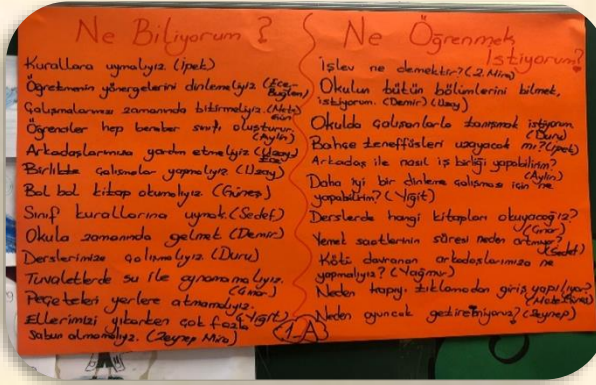 Ne Biliyorum?
Kurallara uymalıyız. (İpek)
Öğretmenin yönergelerini dinlemeliyiz (Ece,
Buğlem)
Çalışmalarımızı zamanında bitirmeliyiz. (Mete
Öğrenciler hep beraber sınıfı oluşturur.
(Aylin)
Arkadaşlarımıza yardım etmeliyiz (Uzay)
Ece
Birlikte çalışmalar yapmalıyız (Uzay)
Bol bol kitap okumalıyız. (Güneş)
Sınıf kurallarına uymak. (Sedef)
Okula zamanında gelmek (Demir)
Derslerimize çalışmalıyız. (Duru)
Tuvaletlerde su ile oynamamalıyız.
(Çınar)
Peçeteleri yerlere atmamalıyız.
(Yiğit)
Ellerimizi yıkarken çok fazla
sabun almamalıyız. (Zeynep Mira)
Ne Öğrenmek
İstiyorum?
İşlev ne demektir? (Z. Mira)
Okulun bütün bölümlerini bilmek
istiyorum. (Demir) (Uzay)
Okulda çalışanlarla tanışmak istiyorum
(Duru)
Bahçe teneffüsleri uzayacak mı? (İpek)
Arkadaş ile nasıl iş birliği yapabilirim?
(Aylin)
Daha iyi bir dinleme çalışması için ne
yapabilirim? (Yiğit)
Derslerde hangi kitapları okuyacağız?
(Çınar)
Yemek saatlerinin süresi neden artmıyor?
(Sedef)
Kötü davranan arkadaşlarımıza ne
yapmalıyız? (Yağmur)
Neden kapıyı tıklamadan giriş yapılıyor?
Neden oyuncak getiremiyoruz? (Zeynep)
1-A